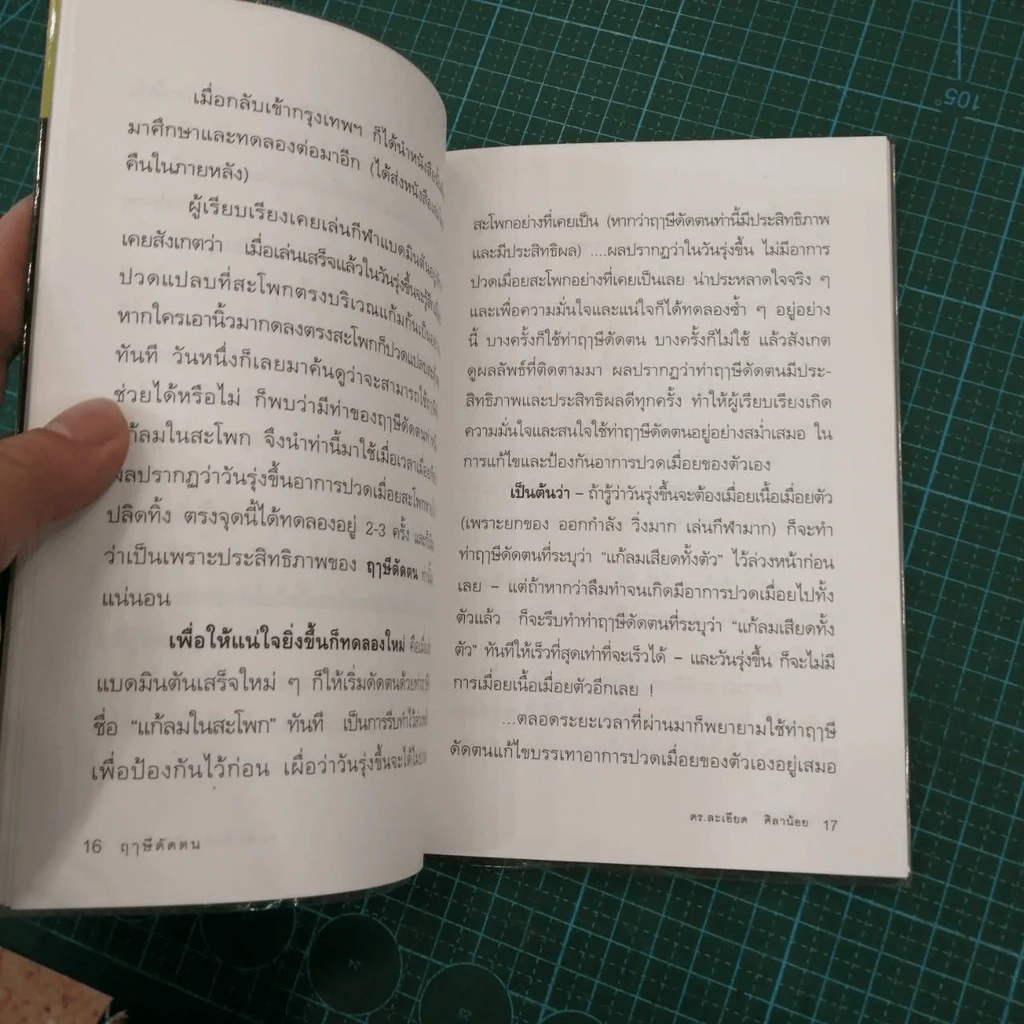 เมื่อกลับเข้ากรุงเทพฯ ก็ได้นำหนังสือ
มาศึกษาและทดลองต่อมาอีก (ได้ส่งหนังสือ
คืนในภายหลัง)
ผู้เรียบเรียงเคยเล่นกีฬาแบดมินตัน
เคยสังเกตว่า เมื่อเล่นเสร็จแล้วในวันรุ่งขึ้นจะรู้สึก
ปวดแปลบที่สะโพกตรงบริเวณแก้มก้น
หากใครเอานิ้วมากดลงตรงสะโพกก็ปวดแปลบ
ทันที วันหนึ่งก็เลยมาค้นดูว่าจะสามารถใช้
ช่วยได้หรือไม่ ก็พบว่ามีท่าของฤๅษีดัดตน
แก้ลมในสะโพก จึงนำท่านี้มาใช้เมื่อเวลา
ผลปรากฏว่าวันรุ่งขึ้นอาการปวดเมื่อยสะโพก
ปลิดทิ้ง ตรงจุดนี้ได้ทดลองอยู่ 2-3 ครั้ง
ว่าเป็นเพราะประสิทธิภาพของ ฤๅษีดัดตน
แน่นอน
เพื่อให้แน่ใจยิ่งขึ้นก็ทดลองใหม่
แบดมินตันเสร็จใหม่ ๆ ก็ให้เริ่มดัดตนด้วย
ชื่อ “แก้ลมในสะโพก” ทันที เป็นการรีบทำไว้
เพื่อป้องกันไว้ก่อน เผื่อว่าวันรุ่งขึ้นจะได้
16 ฤๅษีดัดตน
สะโพกอย่างที่เคยเป็น (หากว่าฤๅษีดัดตนท่านี้มีประสิทธิภาพ
และมีประสิทธิผล) ....ผลปรากฏว่าในวันรุ่งขึ้น ไม่มีอาการ
ปวดเมื่อยสะโพกอย่างที่เคยเป็นเลย น่าประหลาดใจจริง ๆ
และเพื่อความมั่นใจและแน่ใจก็ได้ทดลองซ้ำ ๆ อยู่อย่าง
นี้ บางครั้งก็ใช้ท่าฤๅษีดัดตน บางครั้งก็ไม่ใช้ แล้วสังเกต
ดูผลลัพธ์ที่ติดตามมา ผลปรากฏว่าท่าฤๅษีดัดตนมีประ-
สิทธิภาพและประสิทธิผลดีทุกครั้ง ทำให้ผู้เรียบเรียงเกิด
ความมั่นใจและสนใจใช้ท่าฤๅษีดัดตนอยู่อย่างสม่ำเสมอ ใน
การแก้ไขและป้องกันอาการปวดเมื่อยของตัวเอง
เป็นต้นว่า – ถ้ารู้ว่าวันรุ่งขึ้นจะต้องเมื่อยเนื้อเมื่อยตัว
(เพราะยกของ ออกกำลัง วิ่งมาก เล่นกีฬามาก) ก็จะทำ
ท่าฤๅษีดัดตนที่ระบุว่า “แก้ลมเสียดทั้งตัว” ไว้ล่วงหน้าก่อน
เลย – แต่ถ้าหากว่าลืมทำจนเกิดมีอาการปวดเมื่อยไปทั้ง
ตัวแล้ว ก็จะรีบทำท่าฤๅษีดัดตนที่ระบุว่า “แก้ลมเสียดทั้ง
ตัว” ทันทีให้เร็วที่สุดเท่าที่จะเร็วได้ – และวันรุ่งขึ้น ก็จะไม่มี
การเมื่อยเนื้อเมื่อยตัวอีกเลย !
...ตลอดระยะเวลาที่ผ่านมาก็พยายามใช้ท่าฤๅษี
ดัดตนแก้ไขบรรเทาอาการปวดเมื่อยของตัวเองอยู่เสมอ
ดร.ละเอียด ศิลาน้อย 17
105°